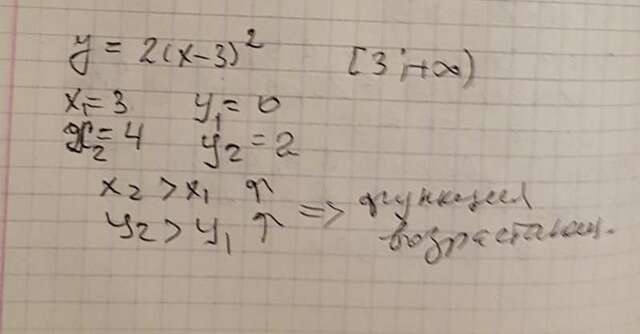 y = 2(x-3)² [3; +∞)
x₁ = 3 y₁ = 0
x₂ = 4 y₂ = 2
x₂ > x₁ ↑
y₂ > y₁ ↑ => функция
возрастающ.